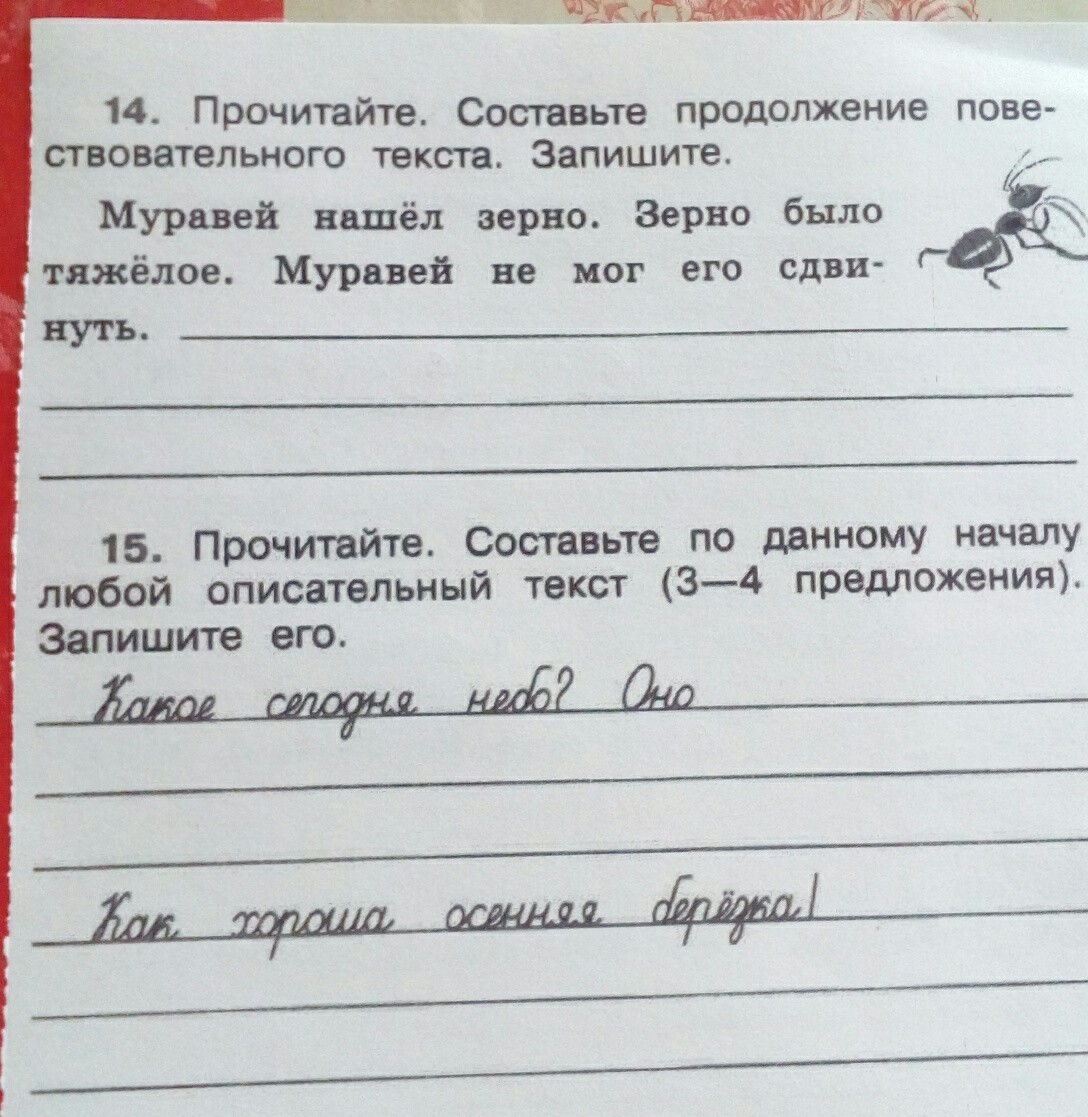 14. Прочитайте. Составьте продолжение пове-
ствовательного текста. Запишите.
Муравей нашёл зерно. Зерно было
тяжёлое. Муравей не мог его сдви-
нуть.
15. Прочитайте. Составьте по данному началу
любой описательный текст (3—4 предложения).
Запишите его.
Какое сегодня небо? Оно
Как хороша осенняя берёзка!